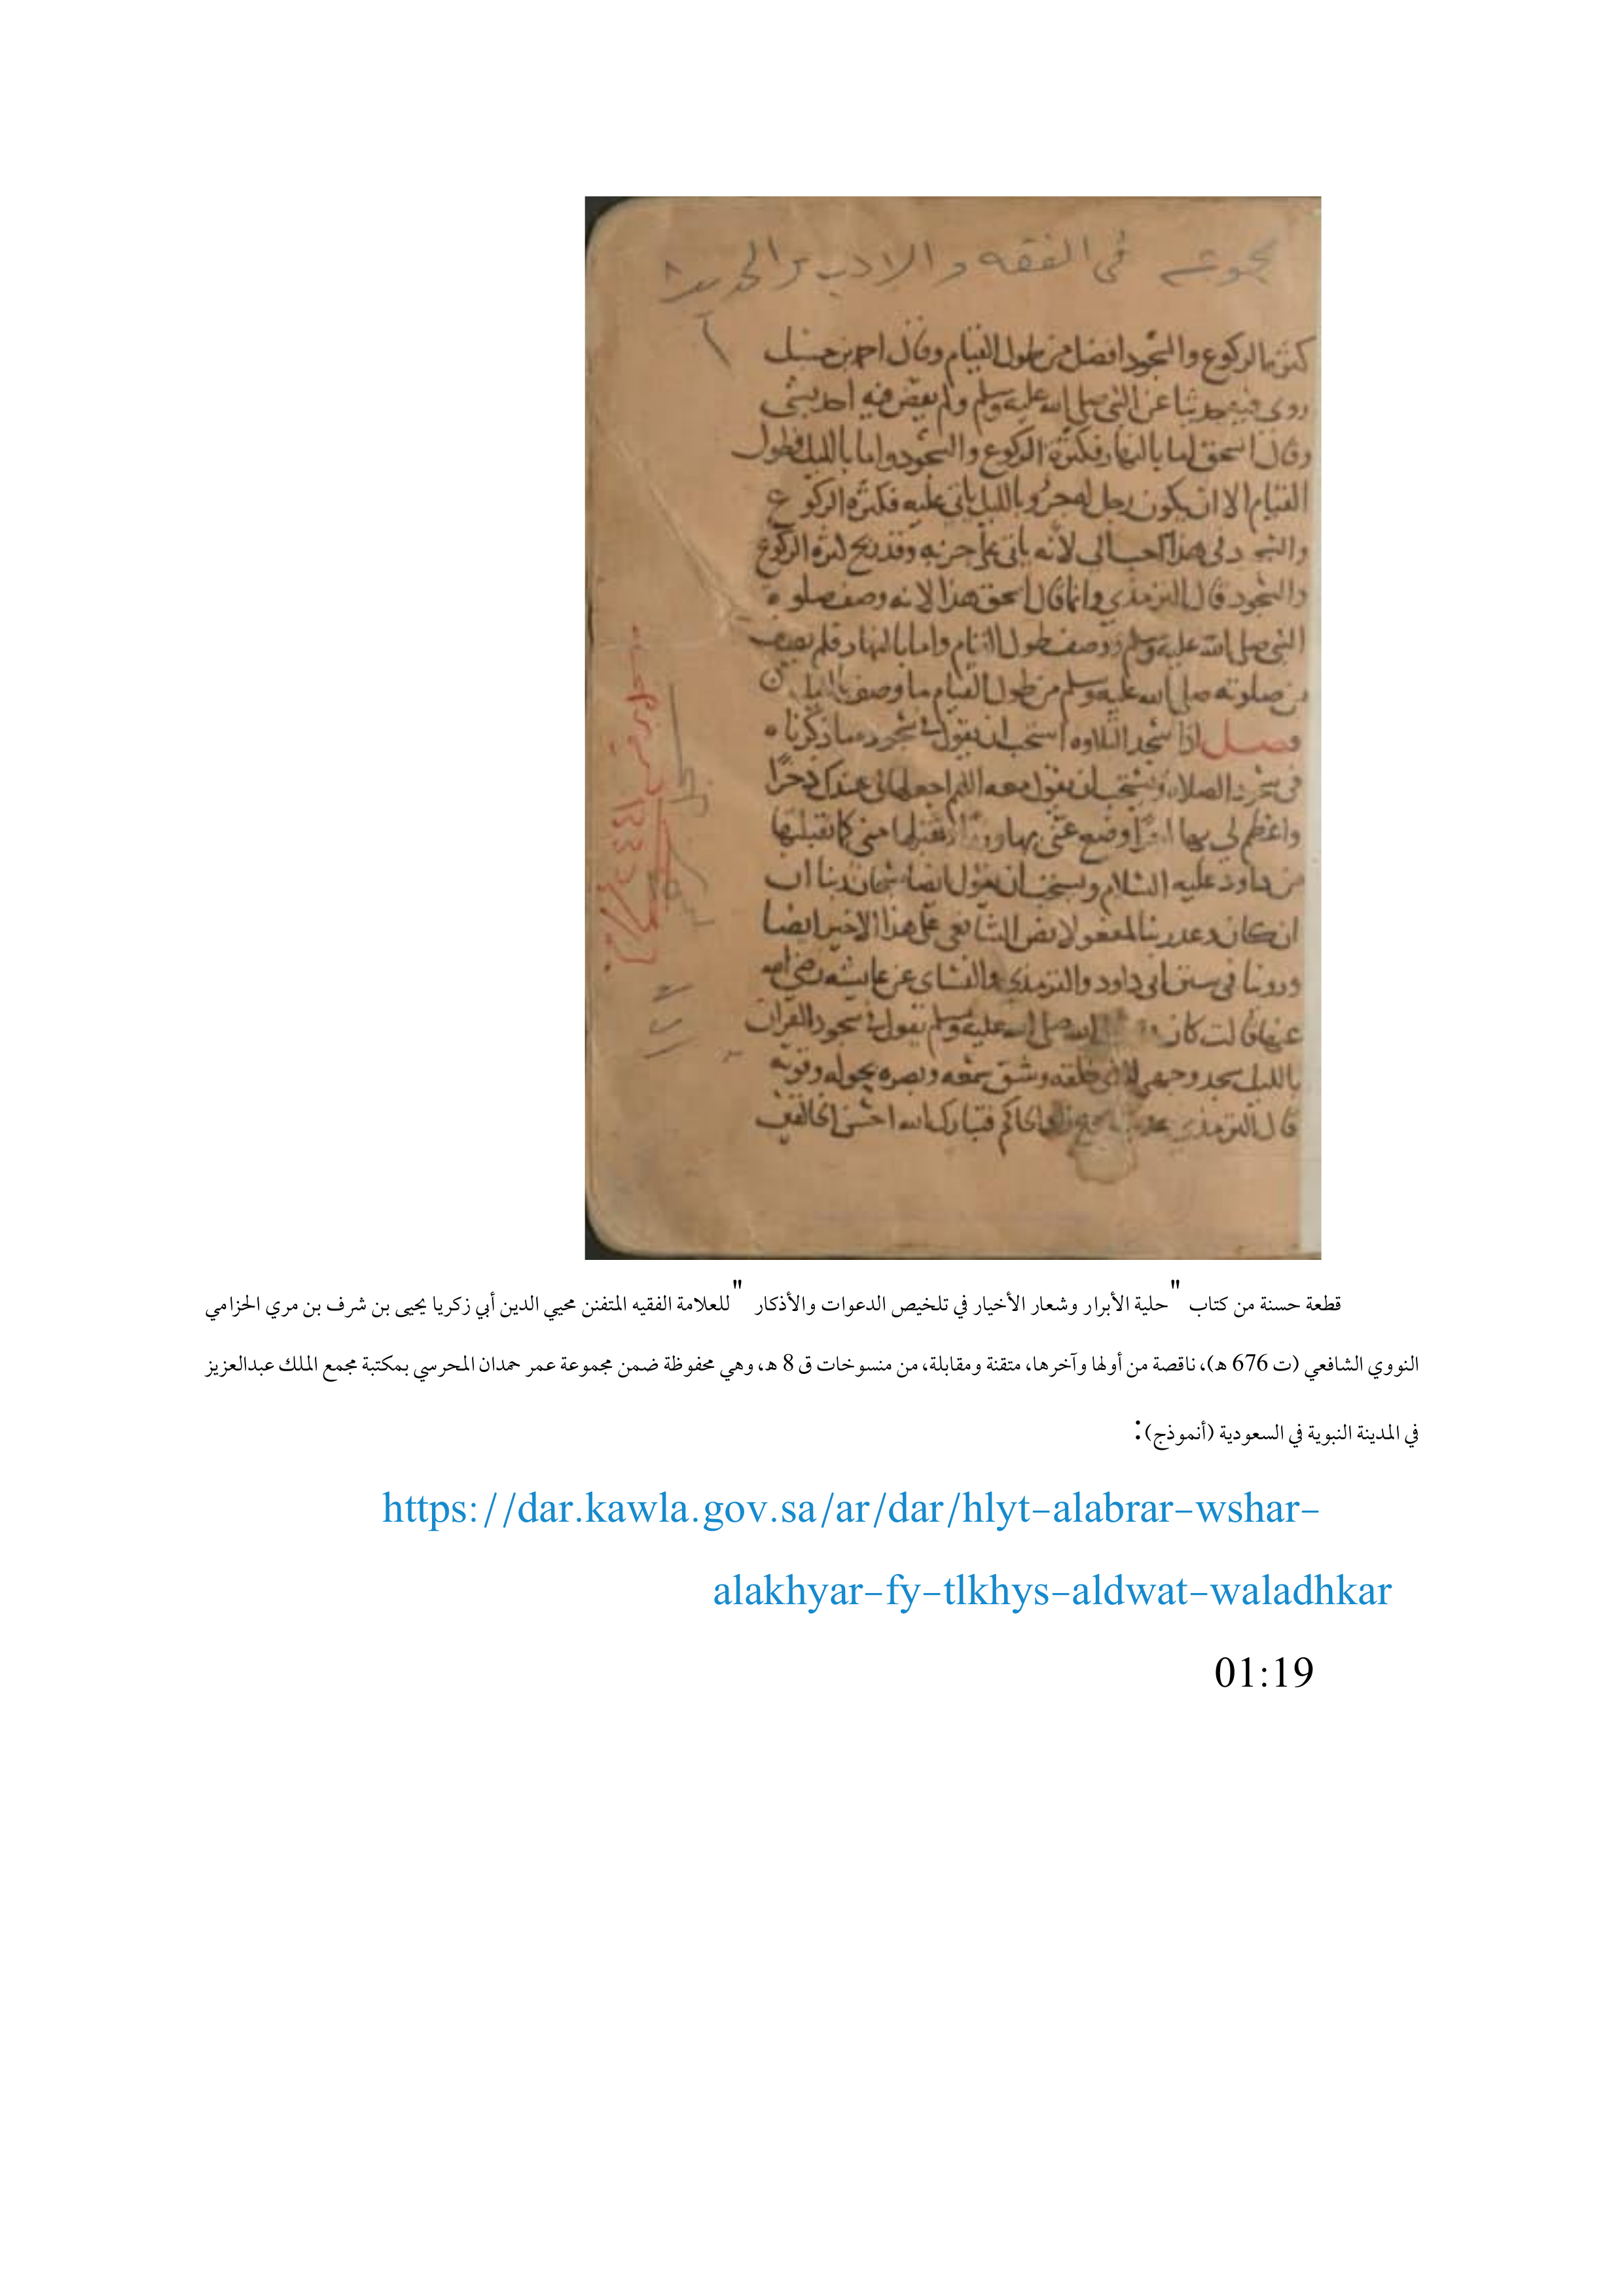 في الفقه والادب والحديث
كثرة الركوع والسجود افضل من طول القيام وقال احمد بن حنبل
روي فيه حديثا عن النبي صلى الله عليه وسلم ولم يقض فيه احمد بشي
وقال اسحق اما بالنهار فكثرة الركوع والسجود واما بالليل فطول
القيام الا ان يكون رجل له جزو بالليل ياتي عليه فكثرة الركوع
والسجود في هذا احب الى لانه ياتي على جزيه وقد ربح كثرة الركوع
والسجود قال الترمذي وانما قال اسحق هذا لانه وصف صلوة
النبي صلى الله عليه وسلم ووصف طول القيام واما بالنهار فلم يوصف
من صلوته صلى الله عليه وسلم من طول القيام ما وصف بالليل
فصل اذا سجد التلاوه استحب ان يقول في سجوده ما ذكرناه
في سجود الصلاه ويستحب ان يقول معه اللهم اجعلها لي عندك ذخرا
واعظم لي بها اجرا وضع عني بها وزرا وتقبلها مني كما تقبلتها
من داود عليه السلام ويستحب ان يقول ايضا سبحان ربنا
ان كان وعد ربنا لمفعولا نص الشافعي على هذا الاخير ايضا
وروينا في سنن ابي داود والترمذي والنساي عن عايشه رضي الله
عنها قالت كان الله صلى الله عليه وسلم يقول في سجود القران
بالليل سجد وجهي للذي خلقه وشق سمعه وبصره بحوله وقوته
قال الترمذي حديث صحيح زاد الحاكم فتبارك الله احسن الخالقين
قطعة حسنة من كتاب "حلية الأبرار وشعار الأخيار في تلخيص الدعوات والأذكار" للعلامة الفقيه المتفنن محيي الدين أبي زكريا يحيى بن شرف بن مري الحزامي
النووي الشافعي (ت 676 هـ)، ناقصة من أولها وآخرها، متقنة ومقابلة، من منسوخات ق 8 هـ، وهي محفوظة ضمن مجموعة عمر حمدان المحرسي بمكتبة مجمع الملك عبدالعزيز
في المدينة النبوية في السعودية (أنموذج):
https://dar.kawla.gov.sa/ar/dar/hlyt-alabrar-wshar-
alakhyar-fy-tlkhys-aldwat-waladhkar
01:19